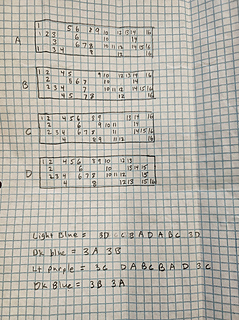 A
5 6 8 9 12 13 14 16
1 2 3 6 10 14
1 3 4 6 7 8 10 11 12 14 15 16
B
1 2 4 5 9 10 12 13 14 16
2 5 6 7 10 14
2 3 4 7 10 11 12 14 15 16
4 5 7 8 12 16
C
1 2 4 5 6 8 9 13 14 16
2 6 9 10 11 14
2 3 4 6 7 8 11 14 15 16
4 8 9 11 12
D
1 2 4 5 6 8 9 10 12 13
2 6 10 13 14 15
2 3 4 6 7 8 10 11 12 15
4 8 12 13 15 16
Light Blue = 3D C B A D A B C 3D
Dk blue = 3A 3B
Lt Purple = 3C D A B C B A D 3C
Dk Blue = 3B 3A